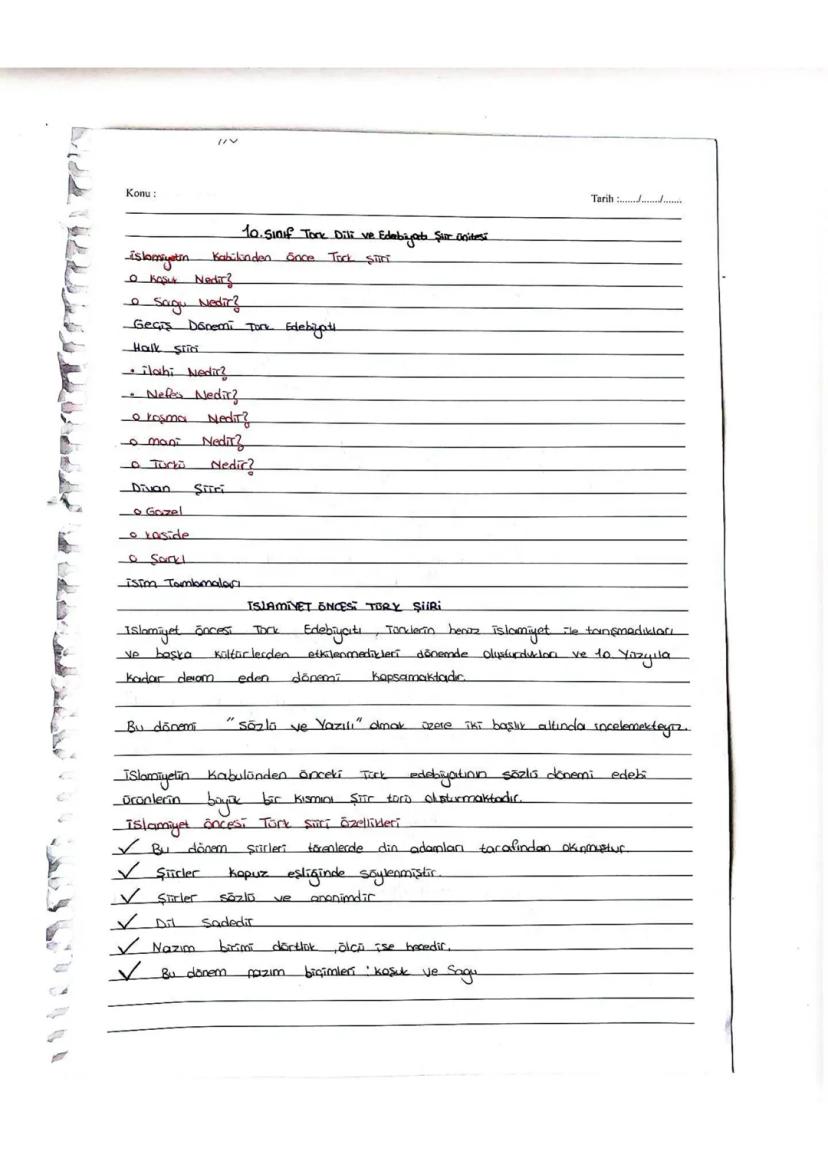 Konu :
Tarih :....../....../......
10. Sınıf Türk Dili ve Edebiyatı Şiir Ünitesi
İslamiyetin Kabulünden Önce Türk Şiiri
o Koşuk Nedir?
o Sagu Nedir?
Geçiş Dönemi Türk Edebiyatı
Halk Şiiri
• ilahi Nedir?
• Nefes Nedir?
o Koşma Nedir?
o mani Nedir?
o Türkü Nedir?
Divan Şiiri
o Gazel
o kaside
o Şarkı
İsim Tamlamaları
İSLAMİYET ÖNCESİ TÜRK ŞİİRİ
İslamiyet öncesi Türk Edebiyatı, Türklerin henüz islamiyet ile tanışmadıkları
ve başka kültürlerden etkilenmedikleri dönemde oluşturdukları ve 10. Yüzyıla
kadar devam eden dönemi kapsamaktadır.
Bu dönemi "Sözlü ve Yazılı" olmak üzere iki başlık altında incelemekteyiz.
İslamiyetin Kabulünden önceki Türk edebiyatının sözlü dönemi edebi
ürünlerin büyük bir kısmını Şiir türü oluşturmaktadır.
İslamiyet öncesi Türk Şiiri özellikleri
✓ Bu dönem şiirleri törenlerde din adamları tarafından okunmuştur.
✓ Şiirler kopuz eşliğinde söylenmiştir.
✓ Şiirler sözlü ve anonimdir
✓ Dil Sadedir
✓ Nazım birimi dörtlük, ölçü ise hecedir.
✓ Bu dönem nazım biçimleri : koşuk ve Sagu